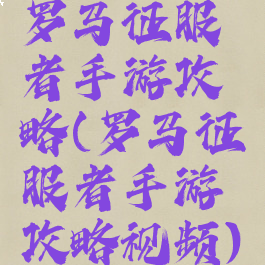 罗马征服
者手游攻
略(罗马征
服者手游
攻略视频)